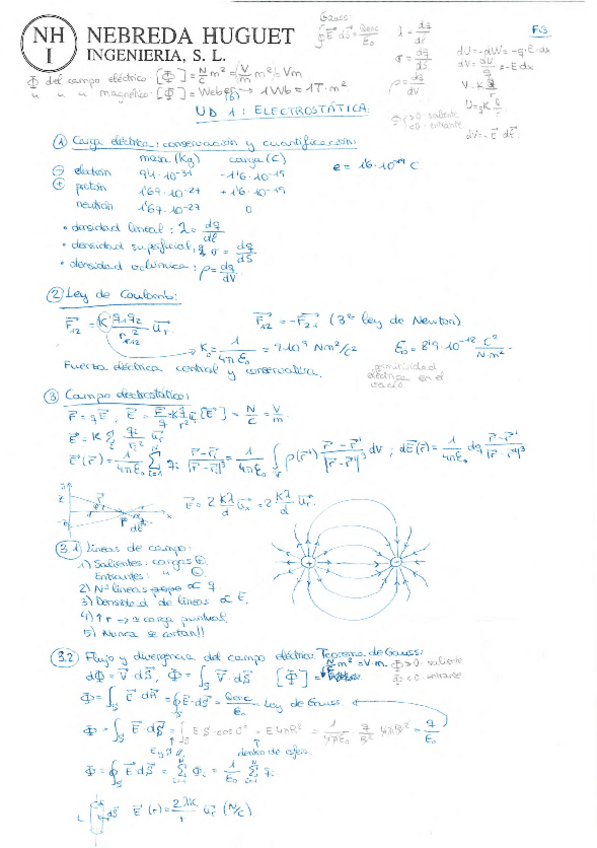 NH
I
NEBREDA HUGUET
INGENIERIA, S. L.
Gauss:
∮E⃗ dS⃗ = Qenc/ε₀
λ = dq/dl
σ = dq/dS
ρ = dq/dV
F.3
dU = -dW = -q·E·dx
dV = dU/q = -E·dx
dV = -E⃗ dℓ⃗
Φ del campo eléctrico: [Φ] = N/C m² = (V/m m²) = Vm
" " " magnético: [Φ] = Weber (Wb) → 1Wb = 1T·m²
UD 1: ELECTROSTÁTICA:
① Carga eléctrica: conservación y cuantificación:
masa (Kg) carga (C)
⊖ electrón 9'1·10⁻³¹ -1'6·10⁻¹⁹ e = 1'6·10⁻¹⁹ C
⊕ protón 1'67·10⁻²⁷ +1'6·10⁻¹⁹
neutrón 1'67·10⁻²⁷ 0
• densidad lineal: λ = dq/dl
• densidad superficial: σ = dq/dS
• densidad volúmica: ρ = dq/dV
② Ley de Coulomb:
F⃗₁₂ = K q₁q₂/r₁₂² u⃗r F⃗₁₂ = -F⃗₂₁ (3ª ley de Newton)
K₀ = 1/4πε₀ = 9·10⁹ Nm²/C² ε₀ = 8'9·10⁻¹² C²/N·m²
Fuerza eléctrica central y conservativa.
permitividad
eléctrica en el
vacío
③ Campo electrostático:
F⃗ = qE⃗, E⃗ = F⃗/q = K q/r² u⃗r [E⃗] = N/C = V/m
E⃗ = K Σ qi/ri² u⃗r
E⃗(r⃗) = 1/4πε₀ Σ qi r⃗-r⃗i/|r⃗-r⃗i|³ = 1/4πε₀ ∫ ρ(r⃗') r⃗-r⃗'/|r⃗-r⃗'|³ dV ; dE⃗(r⃗) = 1/4πε₀ dq r⃗-r⃗'/|r⃗-r⃗'|³
E⃗ = 2 Kλ/d u⃗r = 2 Kλ/d u⃗r
3.1 Líneas de campo:
1) Salientes: cargas ⊕.
Entrantes: " ⊖.
2) Nº líneas ∝ q
3) Densidad de líneas ∝ E.
4) ↑r → ≃ carga puntual.
5) Nunca se cortan!!
+
−
3.2 Flujo y divergencia del campo eléctrico. Teorema de Gauss:
dΦ = V⃗·dS⃗, Φ = ∫S V⃗·dS⃗ [Φ] = N m²/C = V·m.
Φ > 0: saliente
Φ < 0: entrante
Φ = ∫S E⃗·dS⃗ = ∮E⃗·dS⃗ = Qenc/ε₀ Ley de Gauss.
Φ = ∫S E⃗·dS⃗ = ∫ E S·cos 0° = E4πR² = 1/4πε₀ q/R² 4πR² = q/ε₀
E y S //.
dentro de esfera.
Φ = ∮S E⃗dS⃗ = Σ Φi = 1/ε₀ Σ qi
L dS⃗ E⃗(r) = 2λK/r u⃗r (N/C).